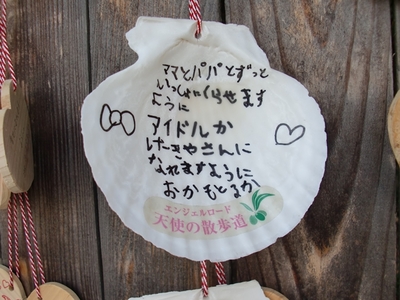 ママとパパとずっと
いっしょにくらせます
ように
アイドルか
けーきやさんに
なれますように
おかもとるか
エンジェルロード
天使の散歩道